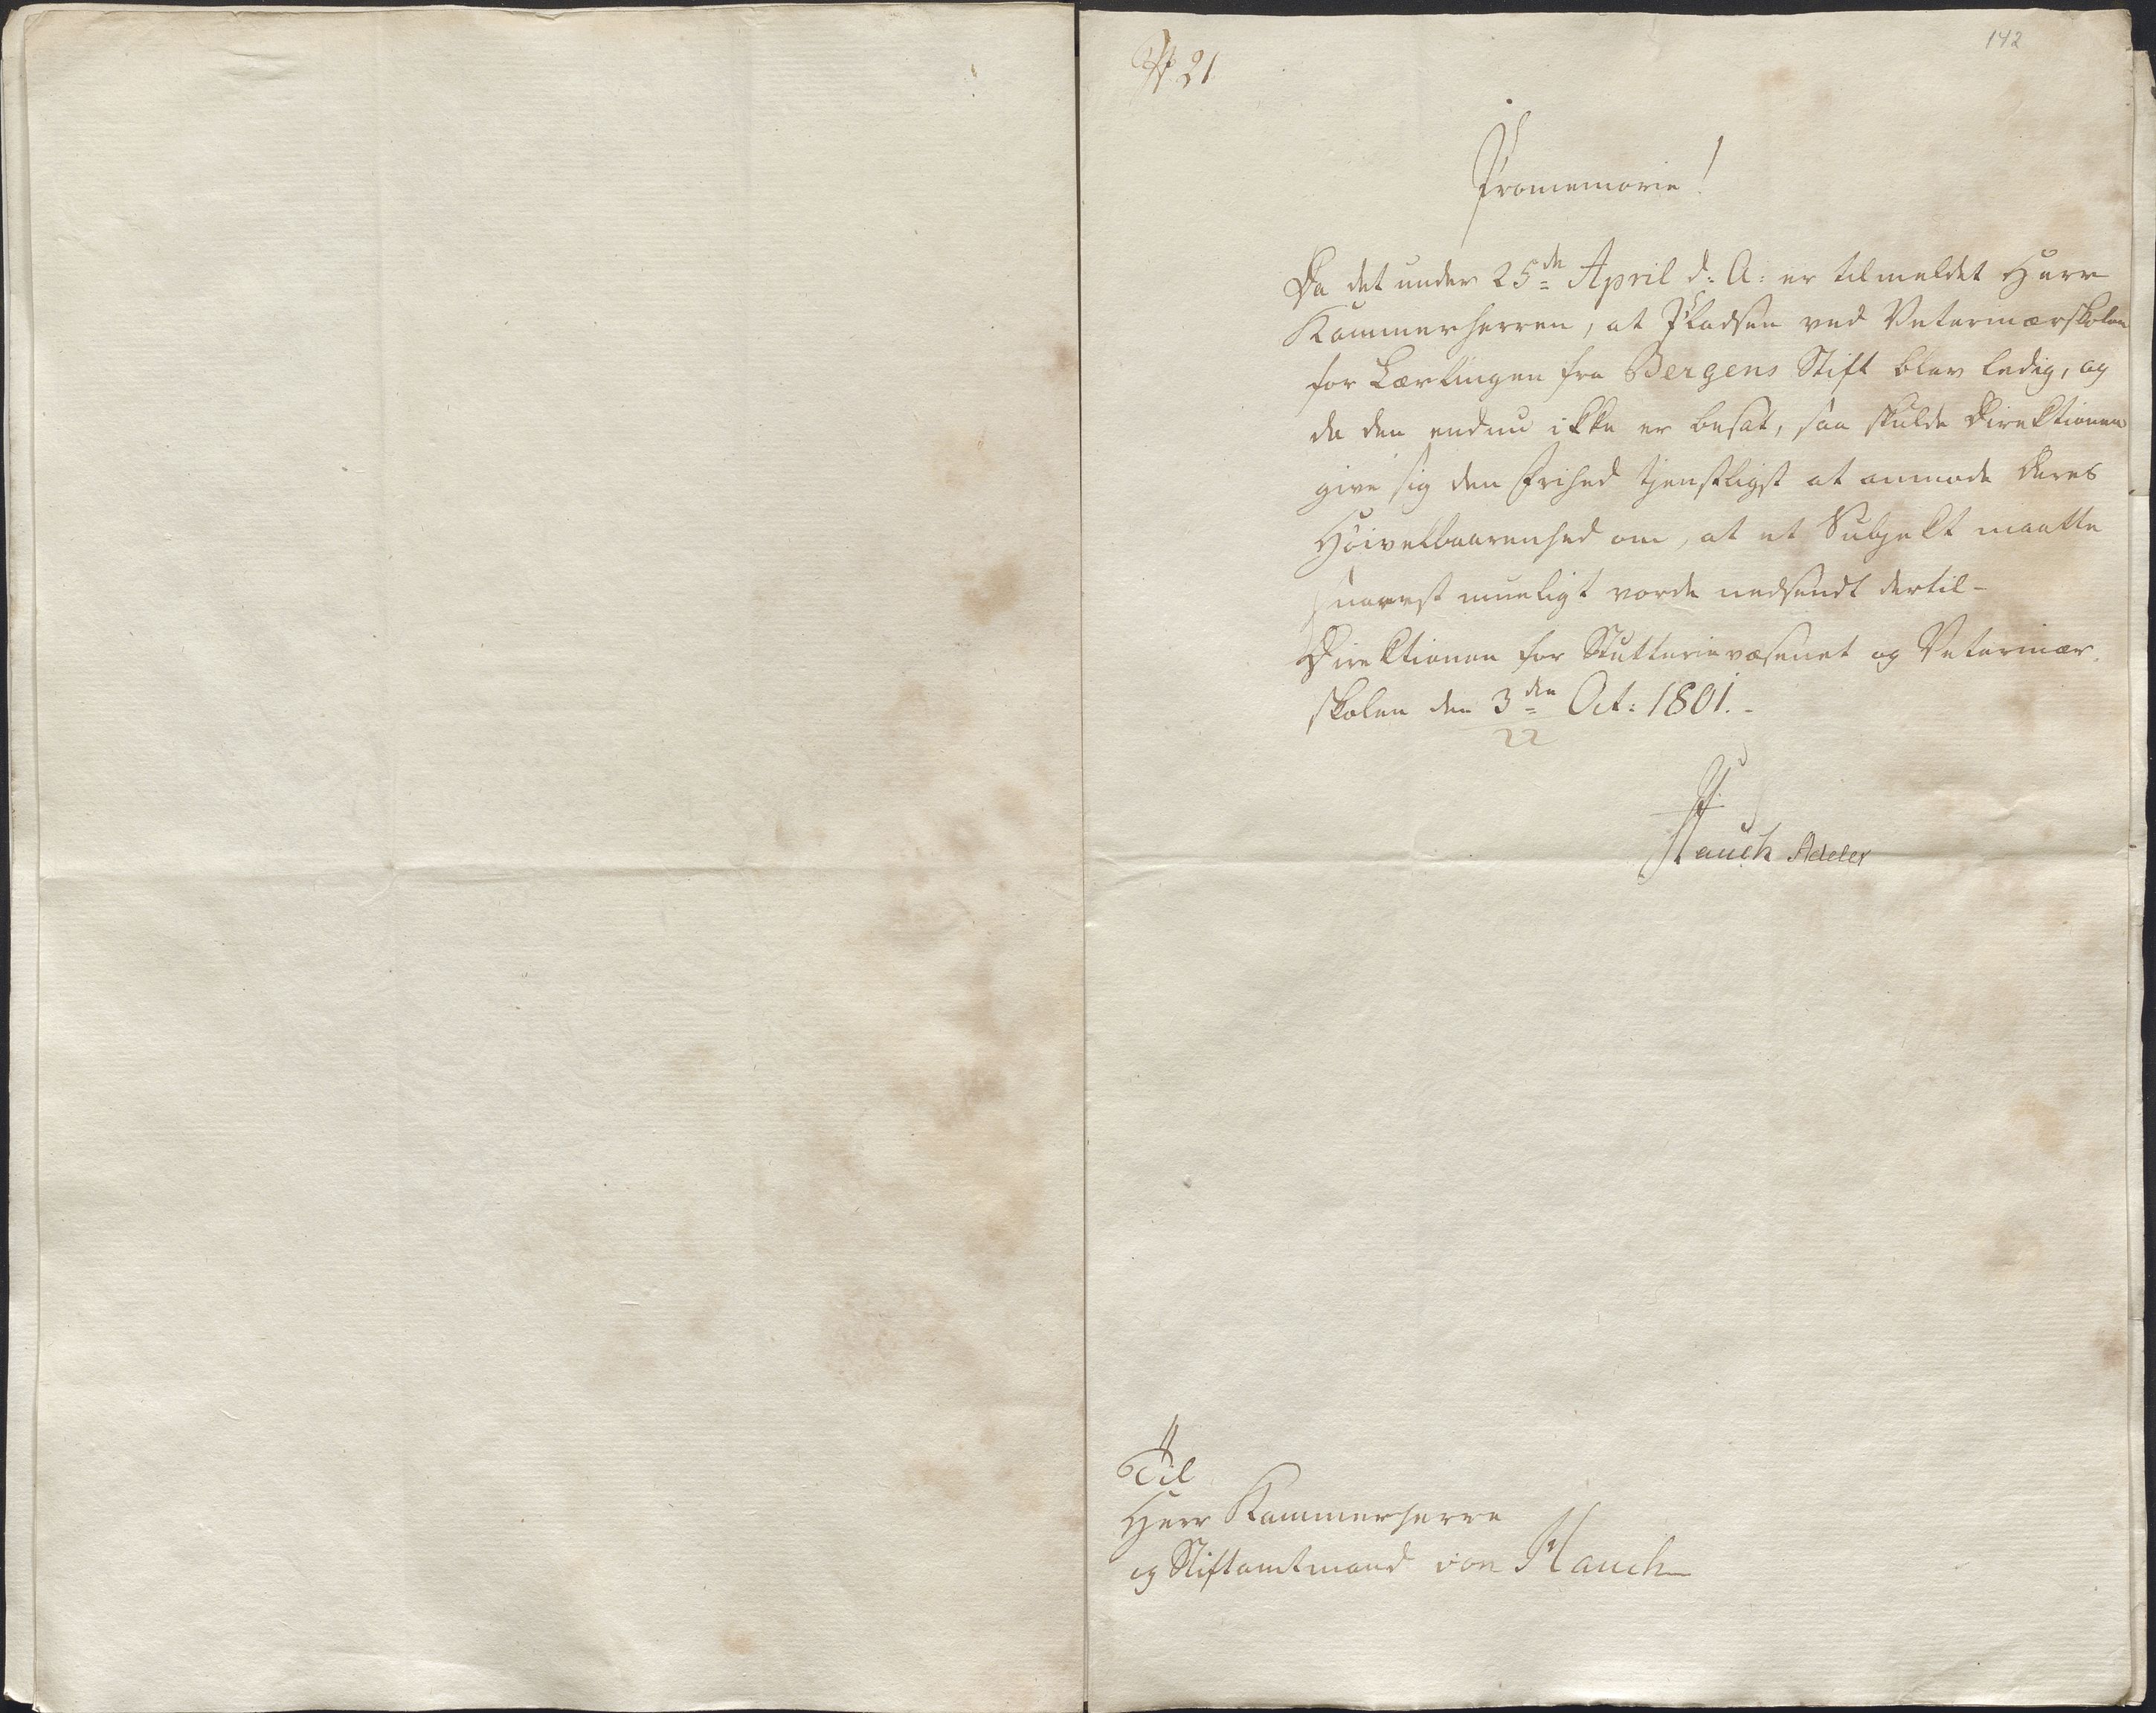 142
N 21
Promemorie!
Da det under 25de April d: A: er tilmeldet Herr
Kammerherren, at Pladsen ved Veterinærskolen
for Lærlingen fra Bergens Stift blev ledig, og
da den endnu ikke er besat, saa skulde Direktionen
give sig den Frihed tjenstligst at anmode Deres
Høivelbaarenhed om, at et Subjekt maatte
snarest mueligt vorde nedsendt dertil-
Direktionen for Stutterievæsenet og Veterinær
skolen den 3den Oct: 1801.-
Hauch Adeler
Til
Herr Kammerherre
og Stiftamtmand von Hauch